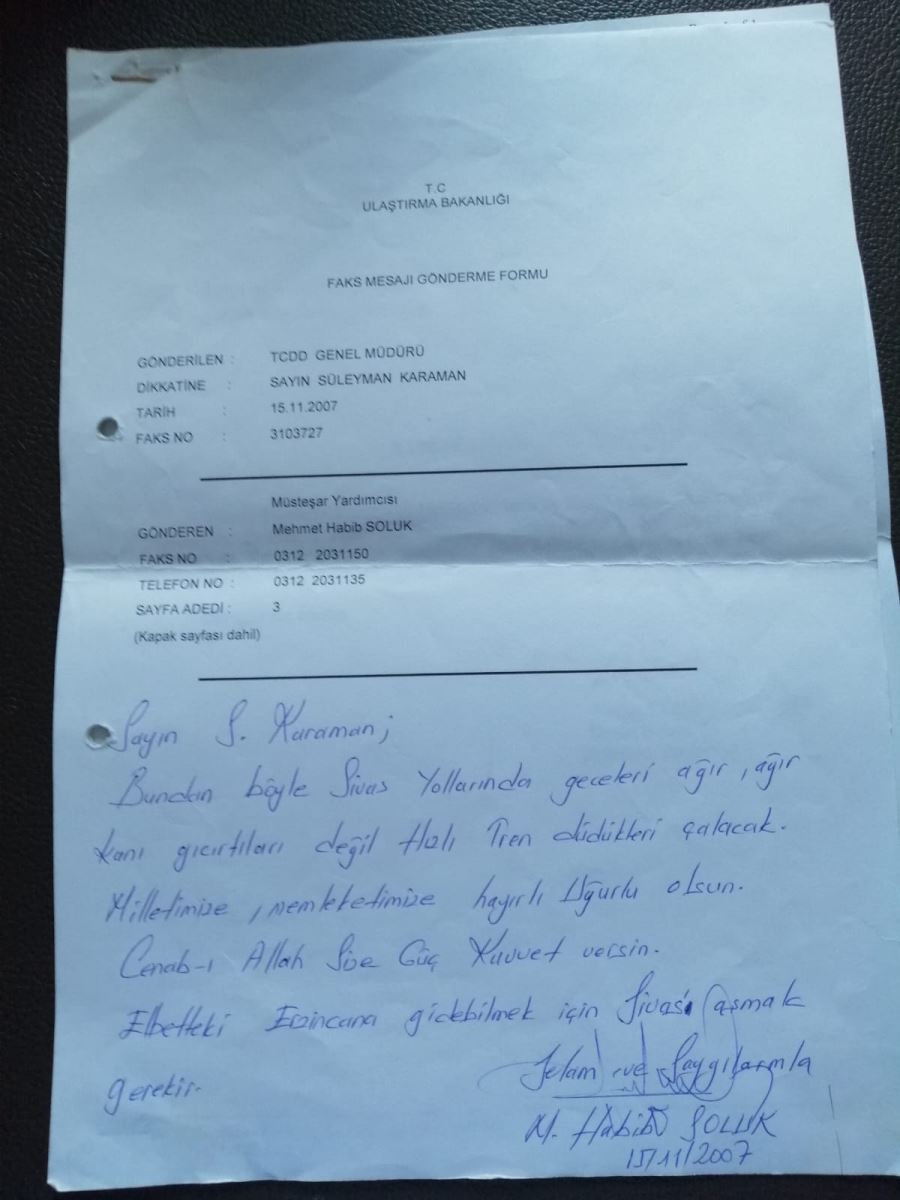 T.C
ULAŞTIRMA BAKANLIĞI
FAKS MESAJI GÖNDERME FORMU
GÖNDERİLEN : TCDD GENEL MÜDÜRÜ
DİKKATİNE : SAYIN SÜLEYMAN KARAMAN
TARİH : 15.11.2007
FAKS NO : 3103727
Müsteşar Yardımcısı
GÖNDEREN : Mehmet Habib SOLUK
FAKS NO : 0312 2031150
TELEFON NO : 0312 2031135
SAYFA ADEDİ : 3
(Kapak sayfası dahil)
Sayın S. Karaman;
Bundan böyle Sivas Yollarında geceleri ağır, ağır
Kanı gıcırtıları değil Hızlı Tren düdükleri çalacak.
Milletimize, memleketimize hayırlı Uğurlu olsun.
Cenab-ı Allah Size Güç Kuvvet versin.
Elbetteki Erzincana gidebilmek için Sivas'ı aşmak
gerekir.
Selam ve Saygılarımla
M. Habib SOLUK
15/11/2007